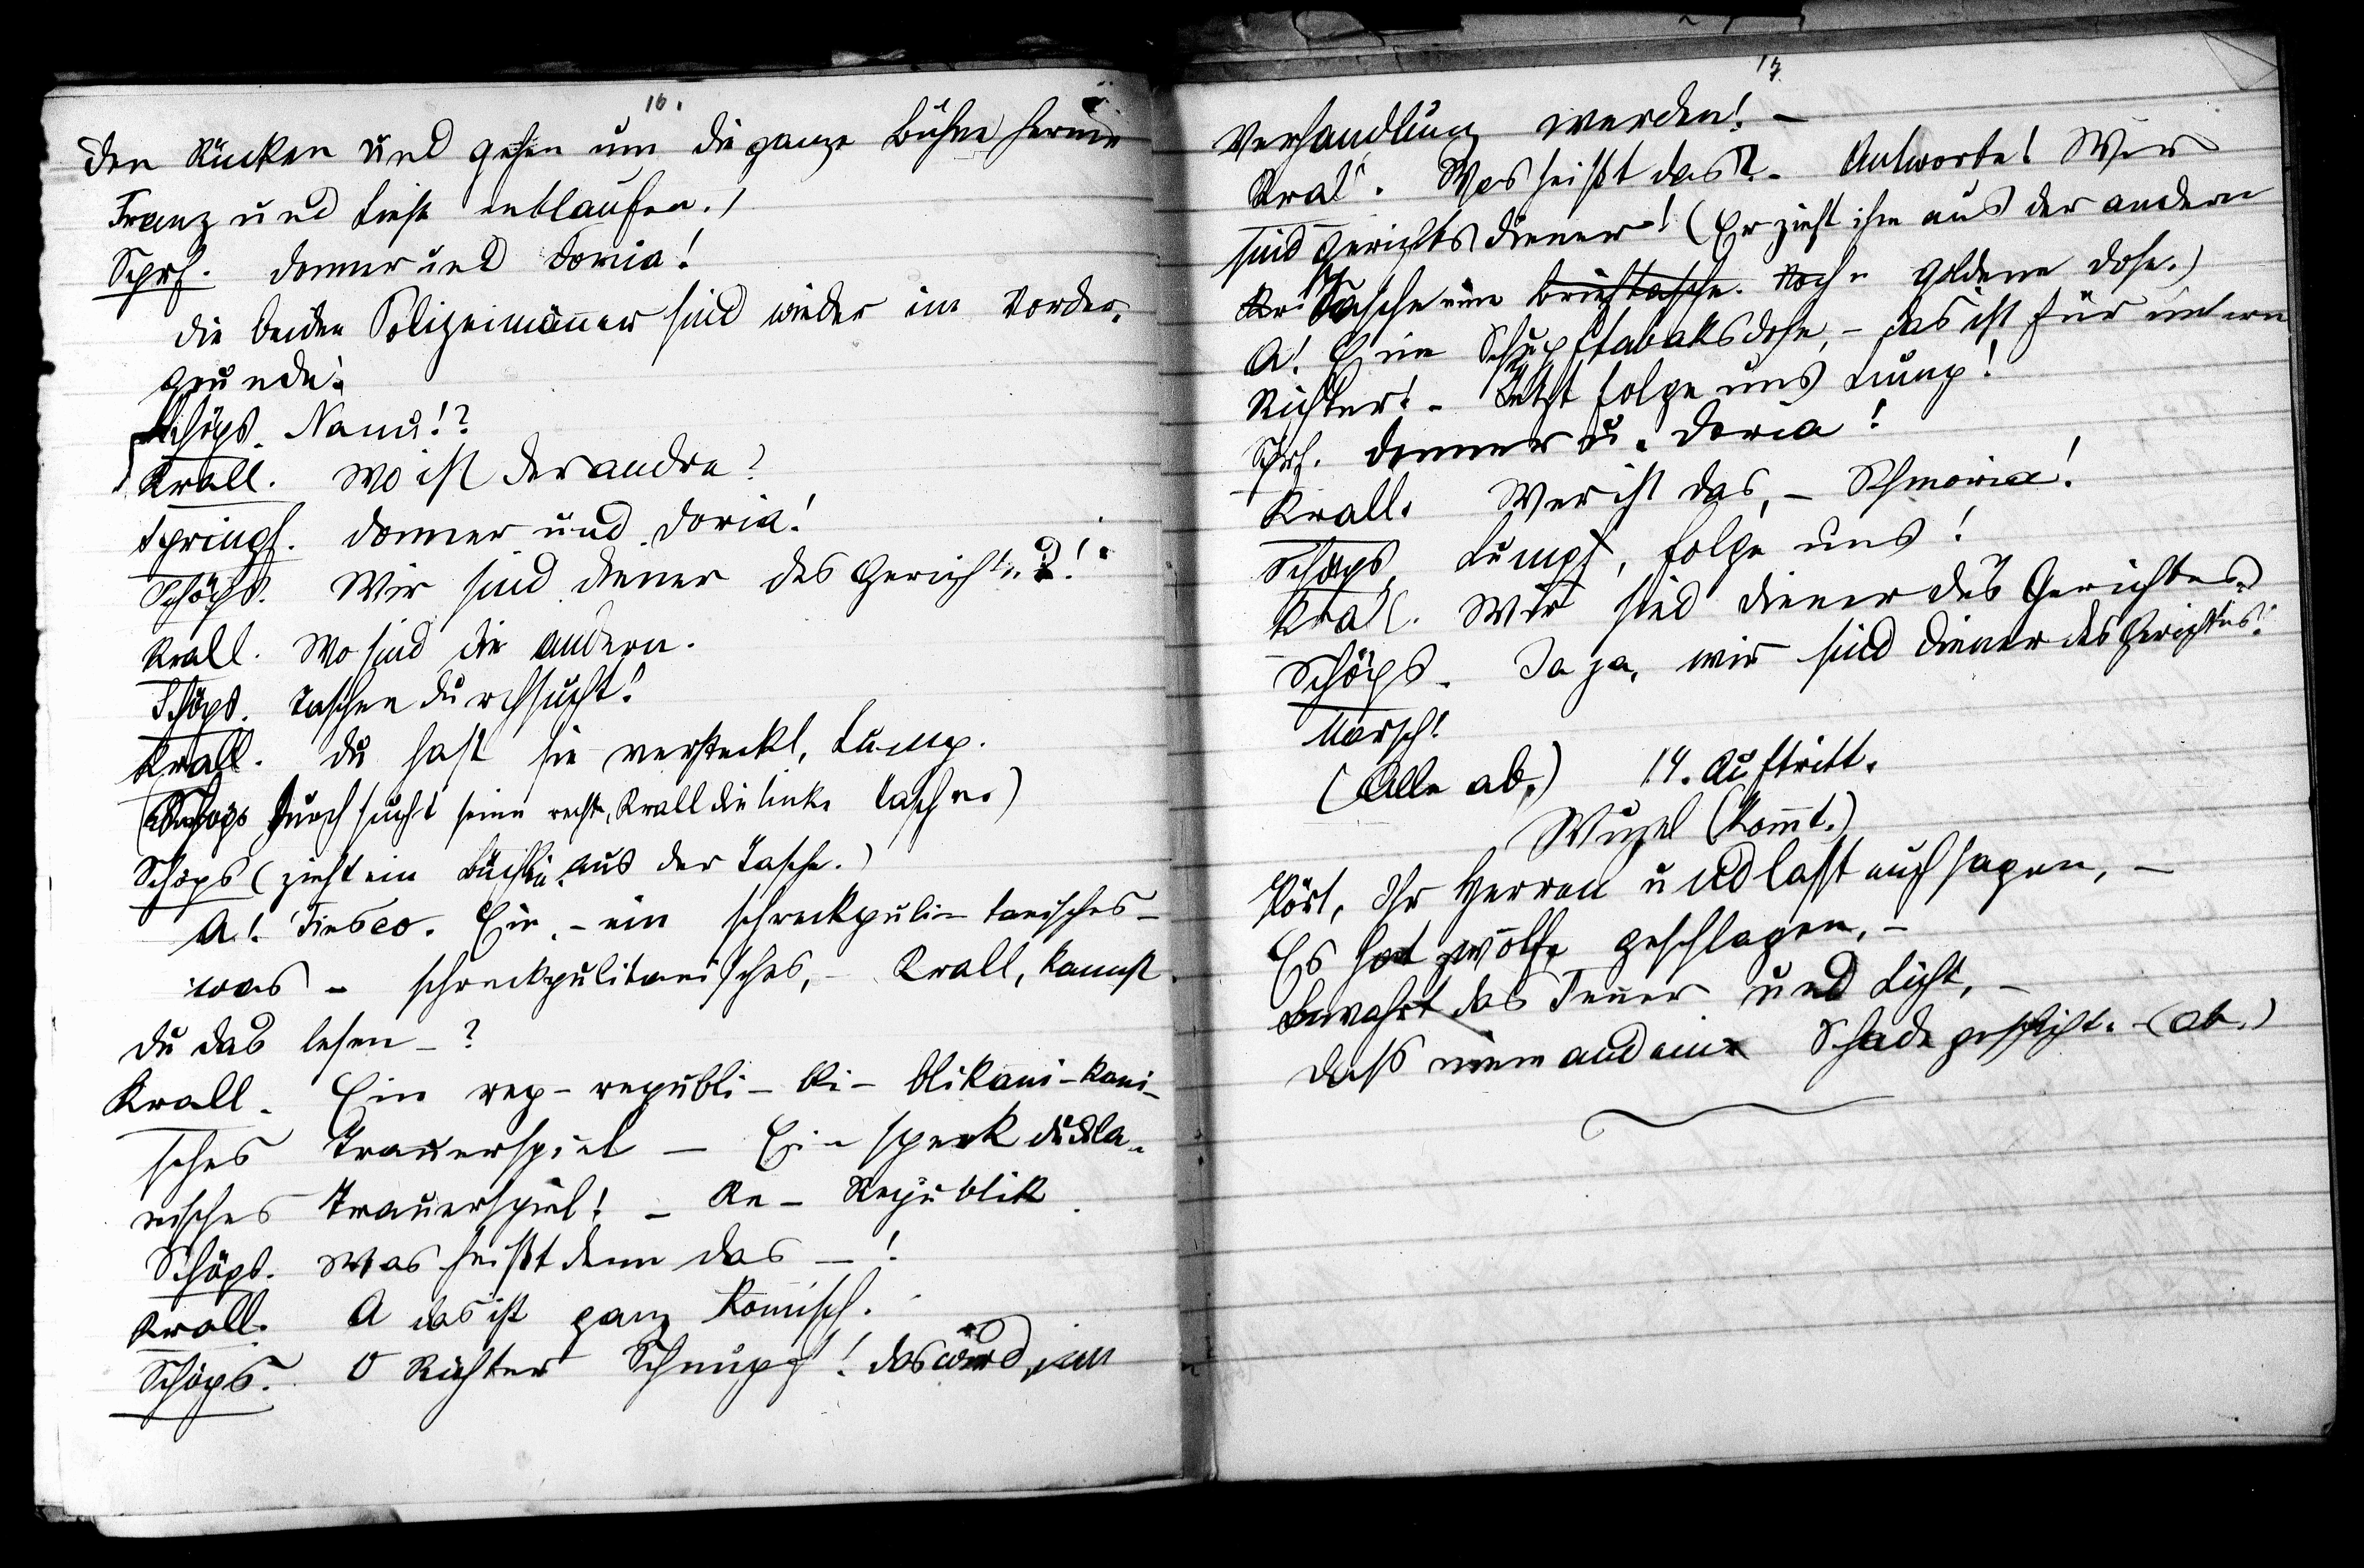 16.
den Rücken und gehen um die ganze Bühne herum
Franz und Liese entlaufen.)
Sprf. Donner und Doria!
Die beiden Polizeimänner sind wieder im Vorder-
grunde.
Schöps. Nanu!?
Krall. Wo ist der andre?
Springf. Donner und Doria!
Schöps. Wir sind Diener des Gerichts!
Krall. Wo sind die andern.
Schöps. Taschen durchsucht!
Krall. Du hast sie versteckt, Lump.
(Schöps durchsucht seine rechte, Krall die linke Tasche.)
Schöps (zieht ein Büchlein aus der Tasche.)
A! Fiesco. Ein, - ein schreckpuli- tanisches -
was - schreckpulitanisches, - Krall, kannst
du das lesen - ?
Krall. Ein rep - republi - bli - blikani - kani -
sches Trauerspiel - Ein speckdudla-
nisches Trauerspiel! - Re - Republik
Schöps. Was heißt denn das - !
Krall. A das ist ganz komisch.
Schöps. O Richter Schnupf! das wird eine
17.
Verhandlung werden! -
Krall. Was heißt das? - Antworte! Wir
sind Gerichtsdiener! (Er zieht ihm aus der andern
Tasche eine Brieftasche. goldene Dose.)
A! Eine Schnupftabaksdose, - das ist für unsern
Richter! - Jetzt folge uns Lump!
Sprf. Donner u. Doria!
Krall. Wer ist das, - Schmoria!
Schöps. Lump, folge uns!
Krall. Wir sind Diener des Gerichtes.
Schöps. Ja ja, wir sind Diener des Gerichtes!
Marsch!
(Alle ab.) 14. Auftritt.
Wuzel (kommt.)
Hört, Ihr Herren und lasst euch sagen, -
Es hat zwölfe geschlagen, -
Bewahrt das Feuer und Licht, -
Dass niemand ein Schade geschicht. - (ab.)